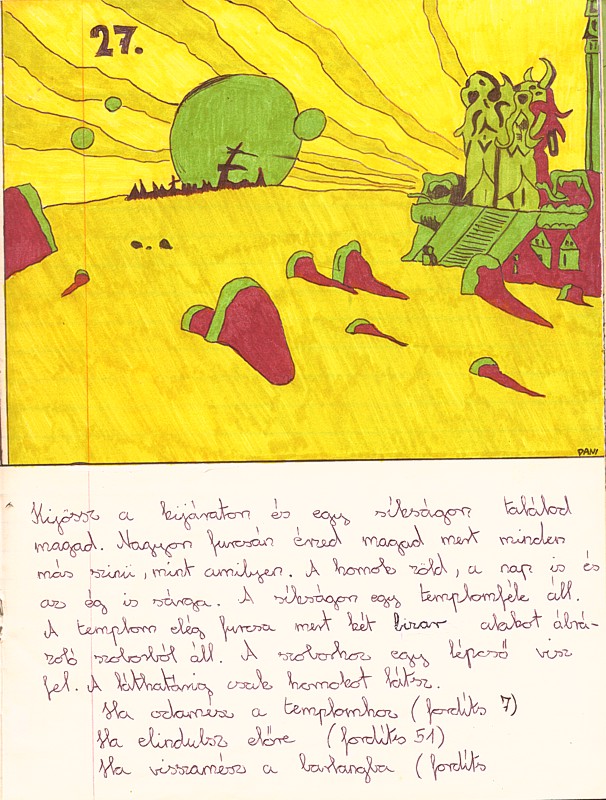 27.
DANI
Kijössz a kijáraton és egy síkságon találod
magad. Nagyon furcsán érzed magad mert minden
más szinü, mint amilyen. A homok zöld, a nap is és
az ég is sárga. A síkságon egy templomféle áll.
A templom elég furcsa mert két bizar alakot ábrá-
zoló szoborból áll. A szoborhoz egy lépcső visz
fel. A láthatárig csak homokot látsz.
Ha odamész a templomhoz (fordíts 7)
Ha elindulsz előre (fordíts 51)
Ha visszamész a barlangba (fordíts